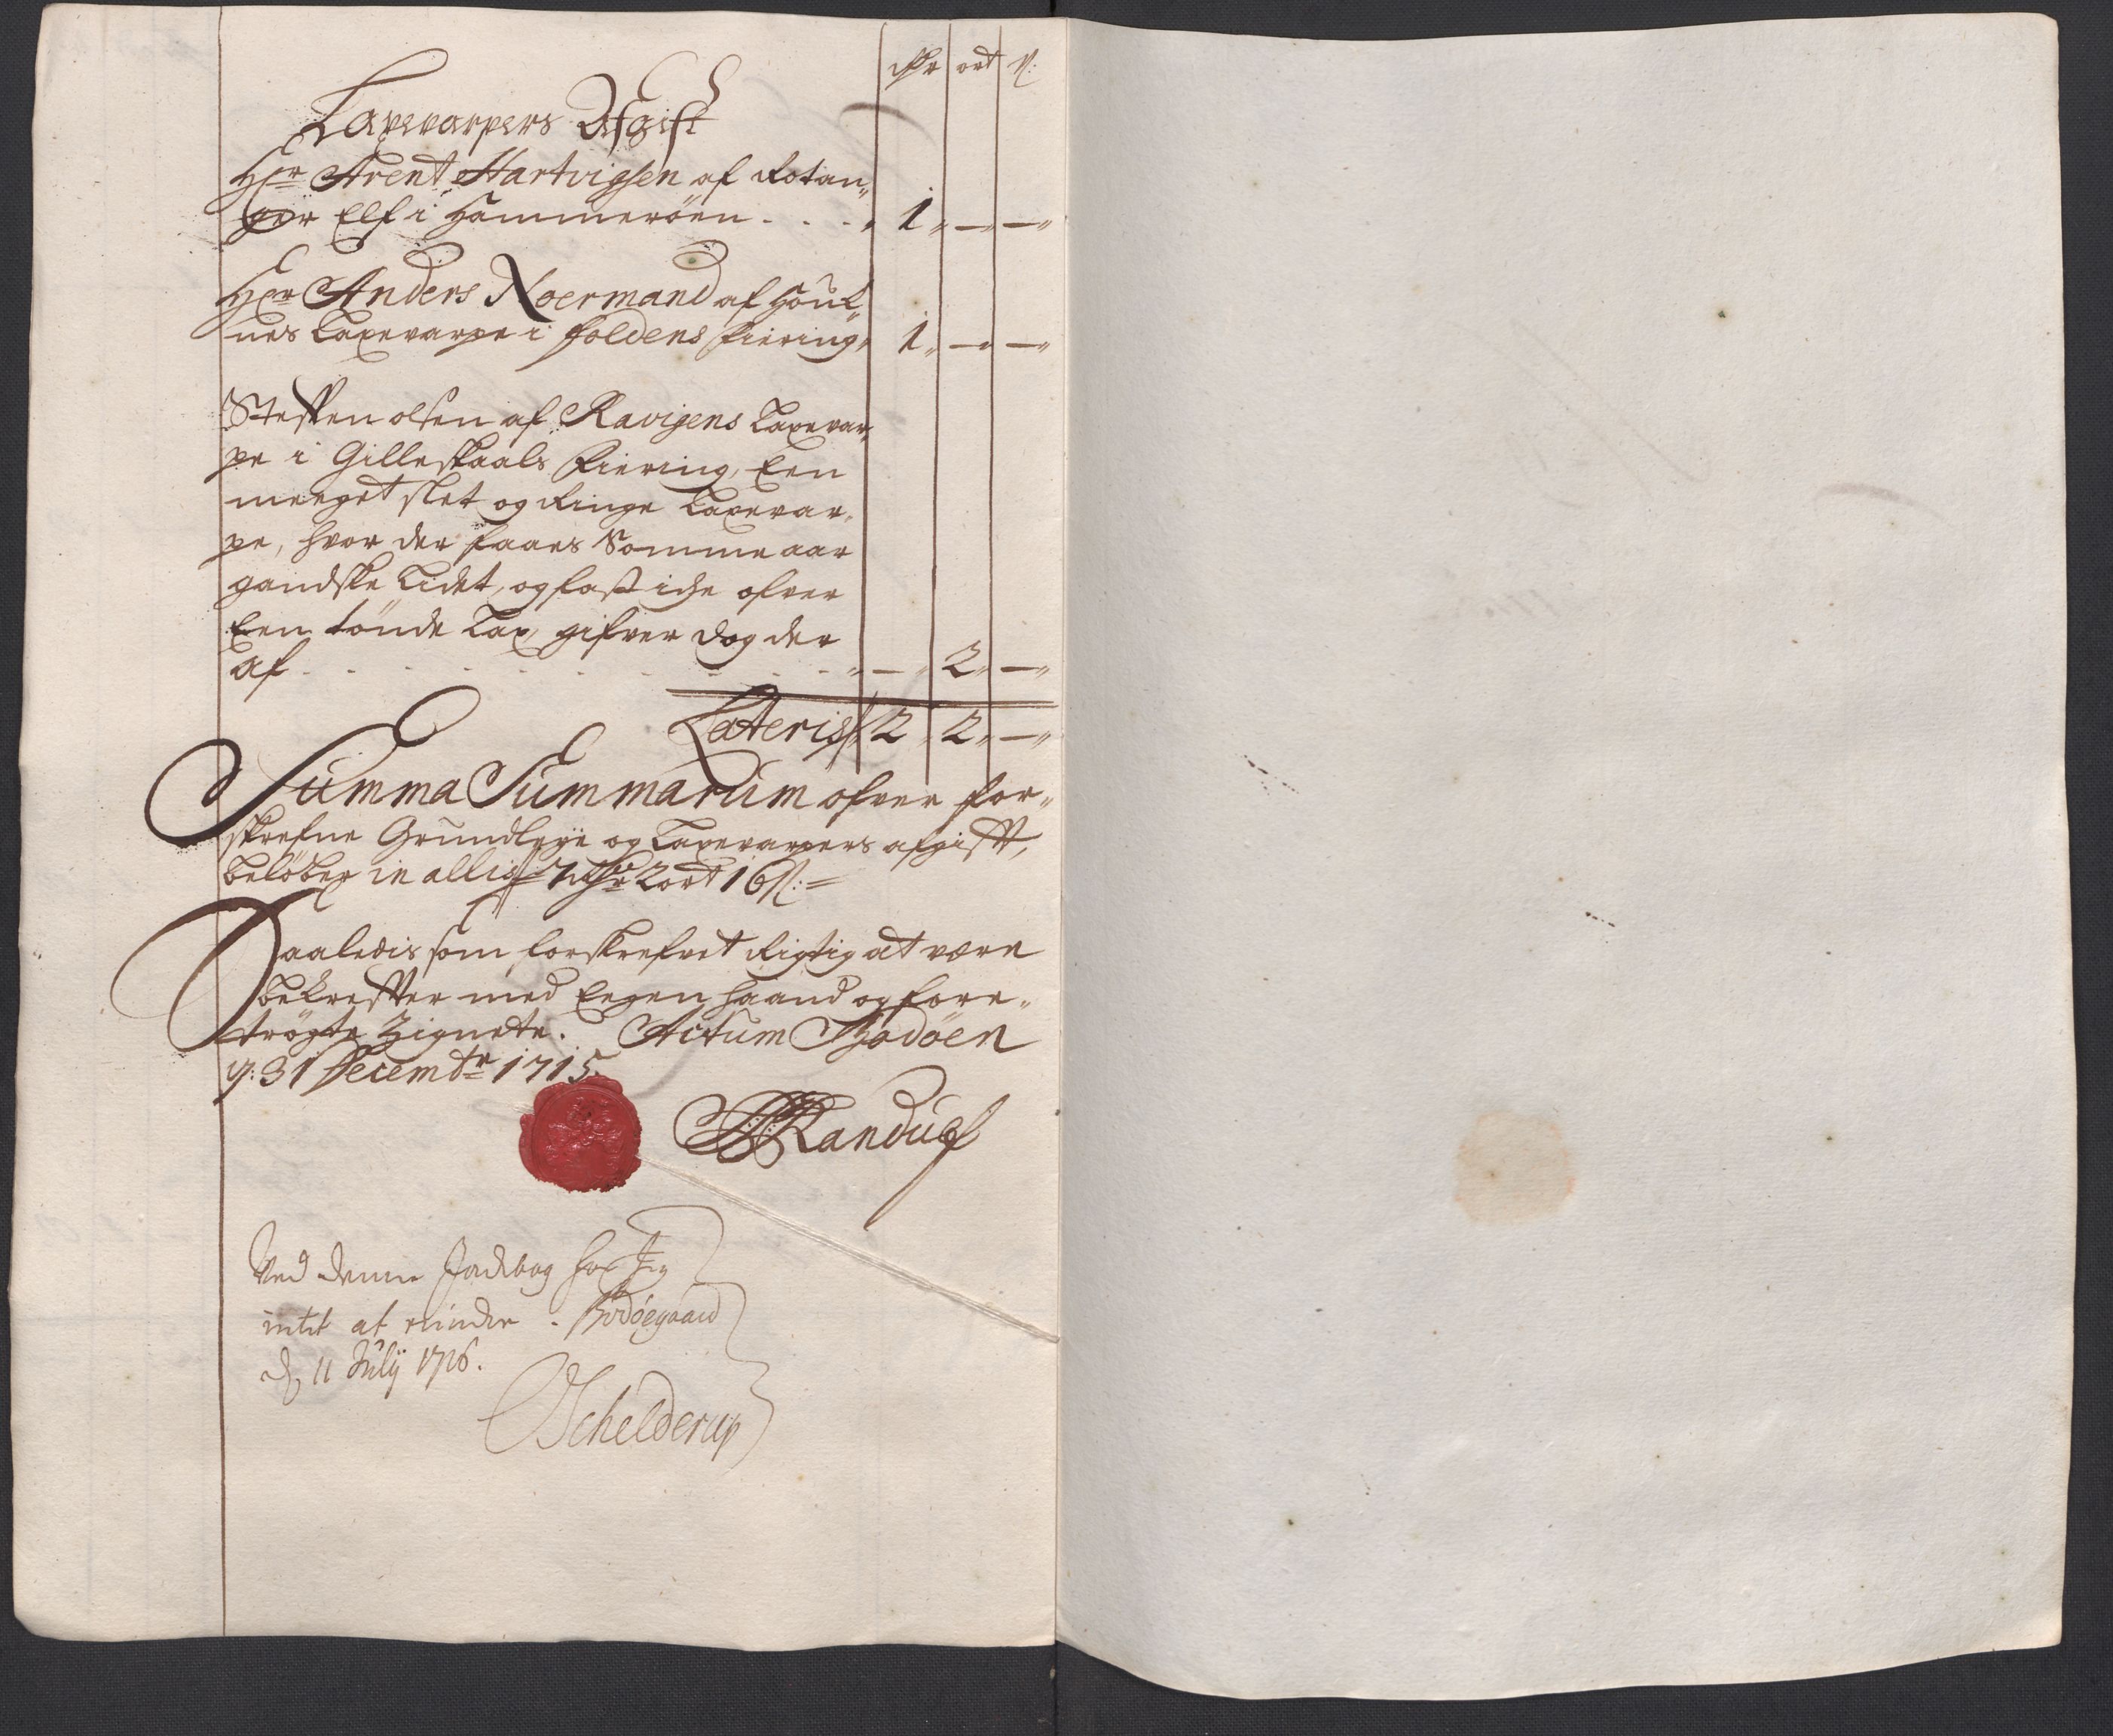 Rdr ort s:
Laxevarpers Afgift
Hr Arent Hartvigsen af Rotan„
gor Elf i Hammeröen . . . . 1„ —„ —„
Hr Anders Noermand af
nes Laxevarpe i Foldens Fiering„ 1„ —„ —„
Steffen olsen af Ravigens Laxevar„
pe i Gilleskaals Fiering, Een
meeget slet og Ringe Laxevar„
pe, hvor der faaes Somme aar
gandske Lidet, og fast iche ofver
Een tönde Lax, gifver dog der
af . . . . . . . . . —„ 2„ —„
Lateris 2„ 2„ —„
Summa Summarum ofver for„
skrefne Grundleye og Laxevarpers afgifft,
belöber in allis 7 Rdr 2 ort 16 s:
Saaledis som forskrefvet Rigtig at være
bekreffter med Eegen haand og fore„
trögte Zignete. Actum Bodöen
d: 31 Decembr 1715.
Randulf
Ved denne Jordebog har Jeg
intet at minde. Bodöegaard
d. 11 Julij 1716.
Schelderup